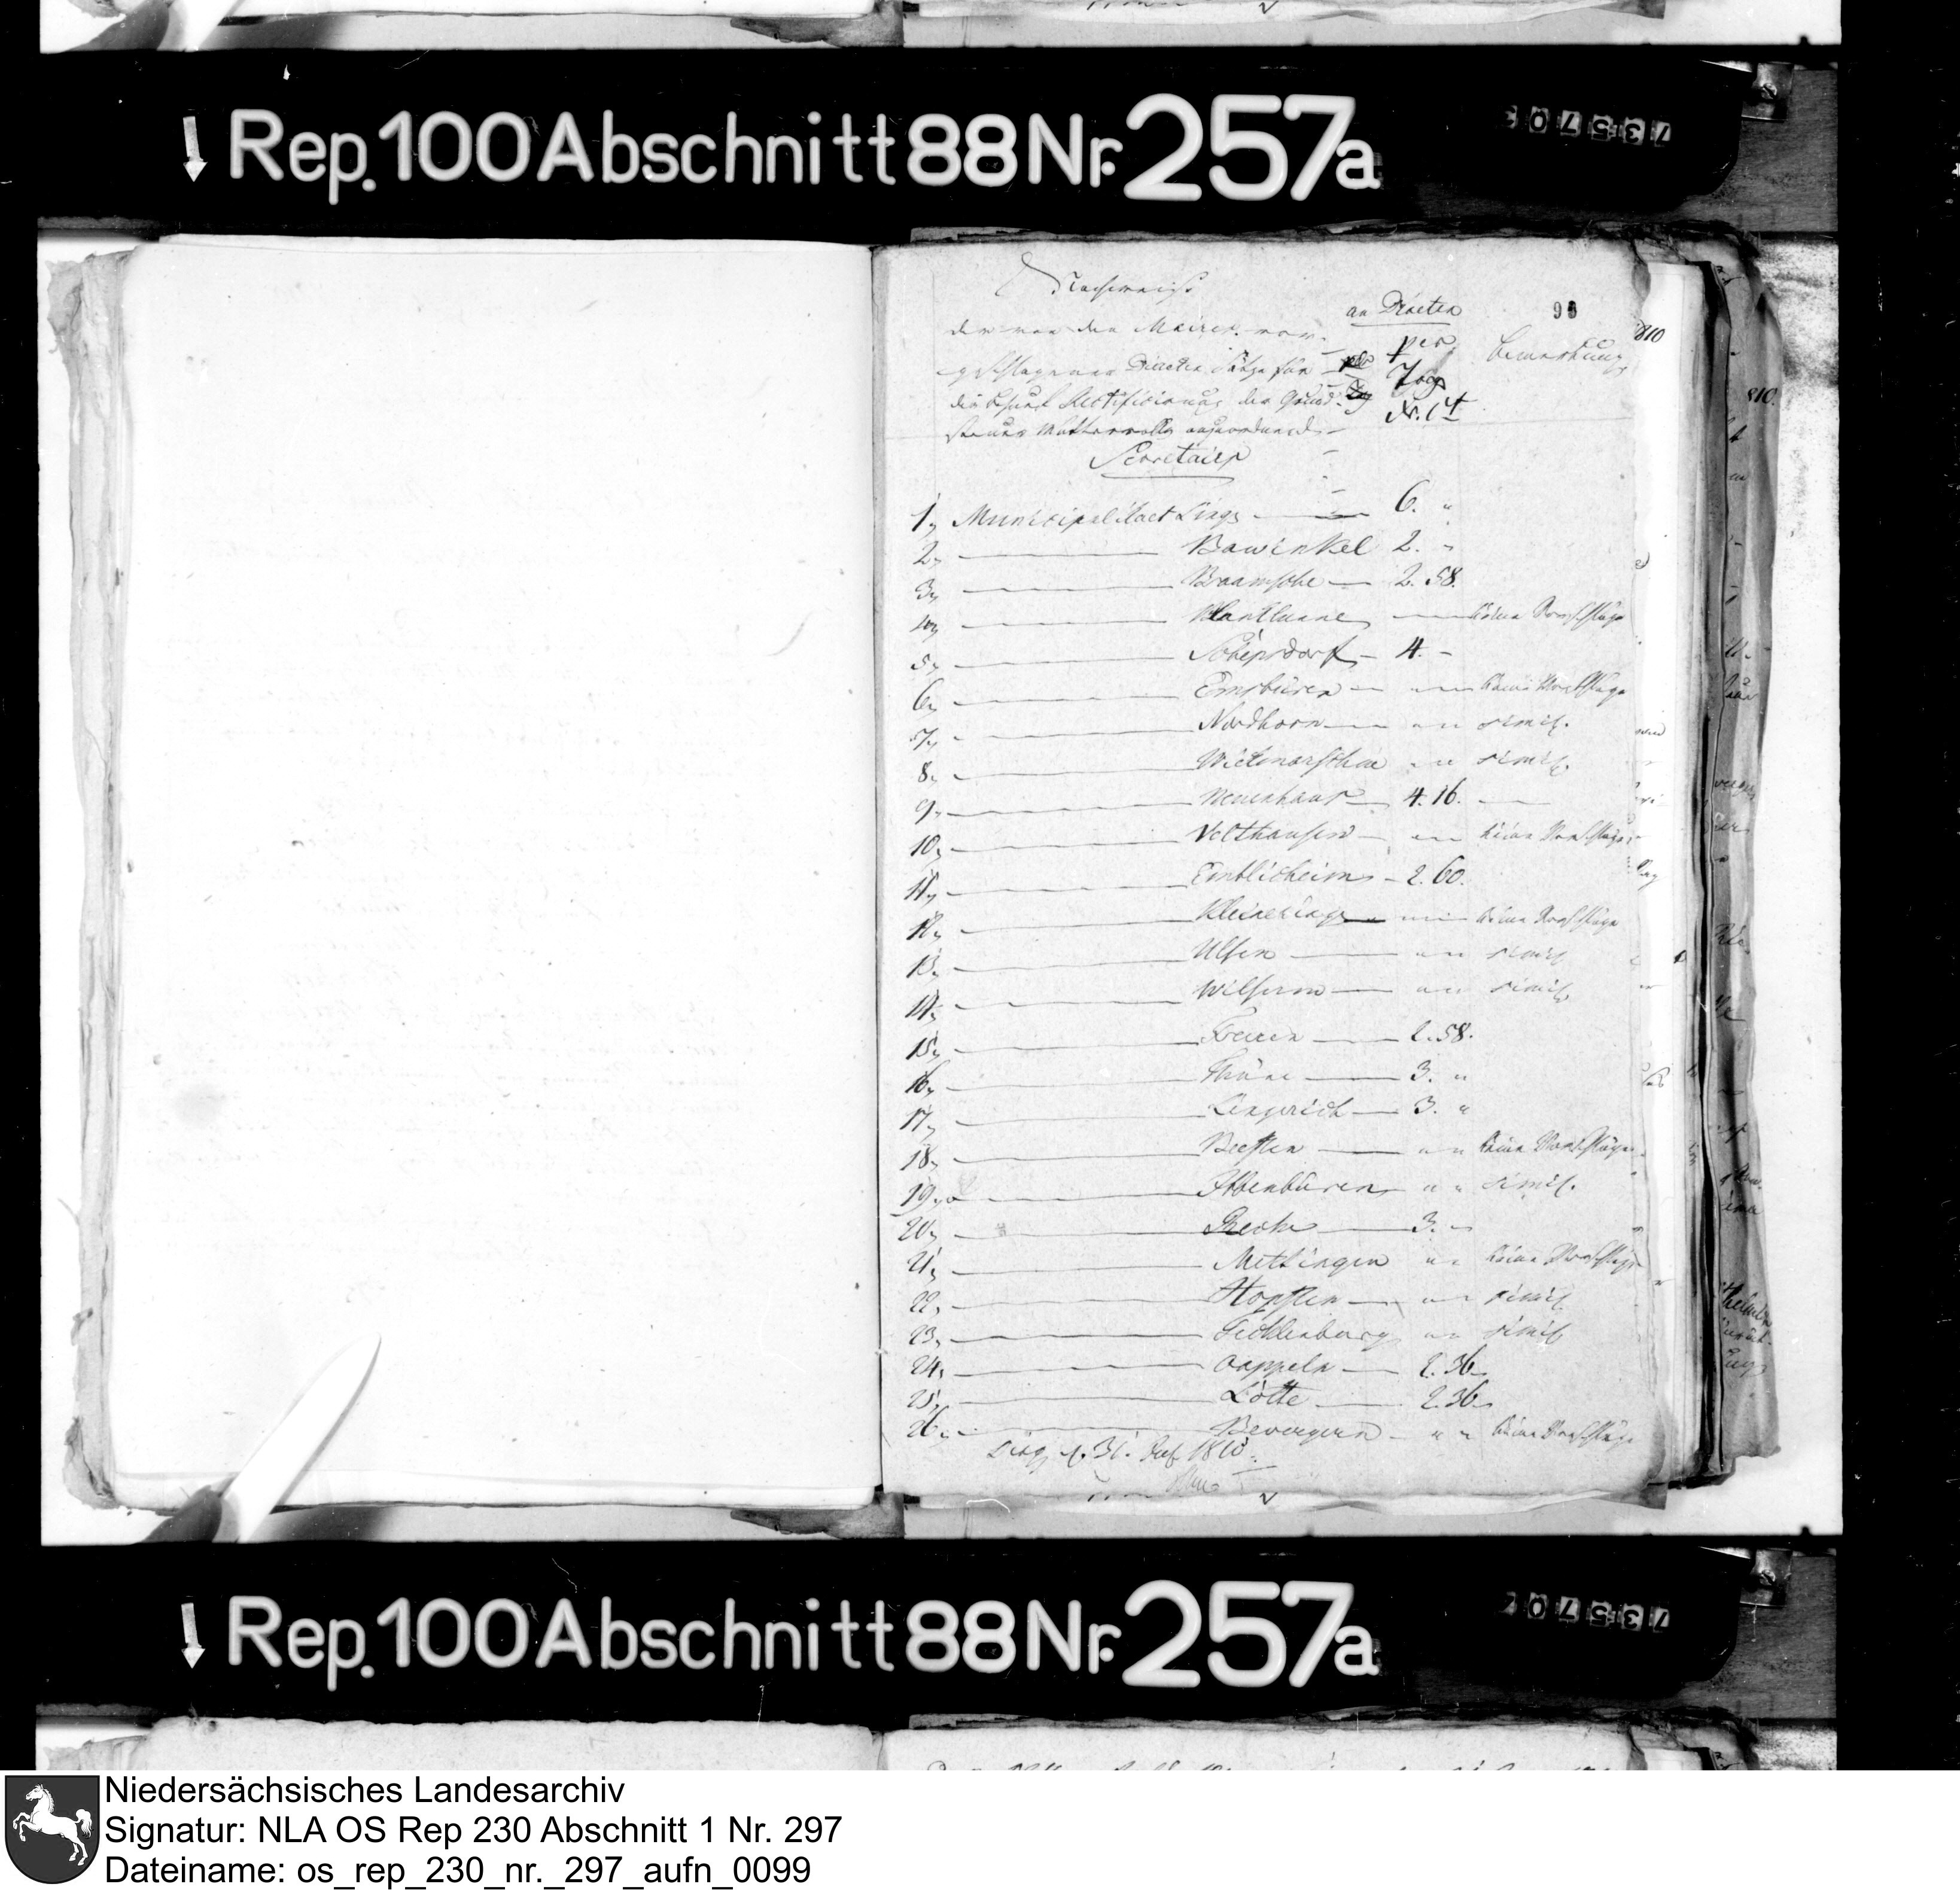 Rep. 100 Abschnitt 88 Nr. 257a
Nachweise
der von den Mairen vor-
geschlagenen Diaeten Sätze für
die behuf Rectificirung der Grund-
steuer Mutterrolle anzuordnend-
Secretairs
an Diaeten
per
Tag
Bemerkung
1, Municipalitaet Linge 6. "
2, Bawinkel 2. -
3, Braamsche 2. 58.
4, Wantlume keine Vorschläge
5, Schepsdorf 4. -
6, Emsbüren keine Vorschläge
7, Nordhorn simil.
8, Wietmarschen simil.
9, Neuenhaus 4. 16.
10, Velthausen keine Vorschläge
11, Emblicheim 2. 60.
12, Kleineringe keine Vorschläge
13, Ulsen simil.
14, Wilsum simil.
15, Freren 2. 58.
16, Thüne 3. "
17, Lengerich 3. "
18, Beesten keine Vorschläge
19, Ibbenbüren simil.
20, Recke 3. -
21, Mettingen keine Vorschläge
22, Hopsten simil.
23, Tecklenburg simil.
24, Cappeln 2. 36.
25, Lotte 2. 36.
26, Bevergern keine Vorschläge
Ling d. 31. 1810.
Rep. 100 Abschnitt 88 Nr. 257a
Niedersächsisches Landesarchiv
Signatur: NLA OS Rep 230 Abschnitt 1 Nr. 297
Dateiname: os_rep_230_nr._297_aufn_0099